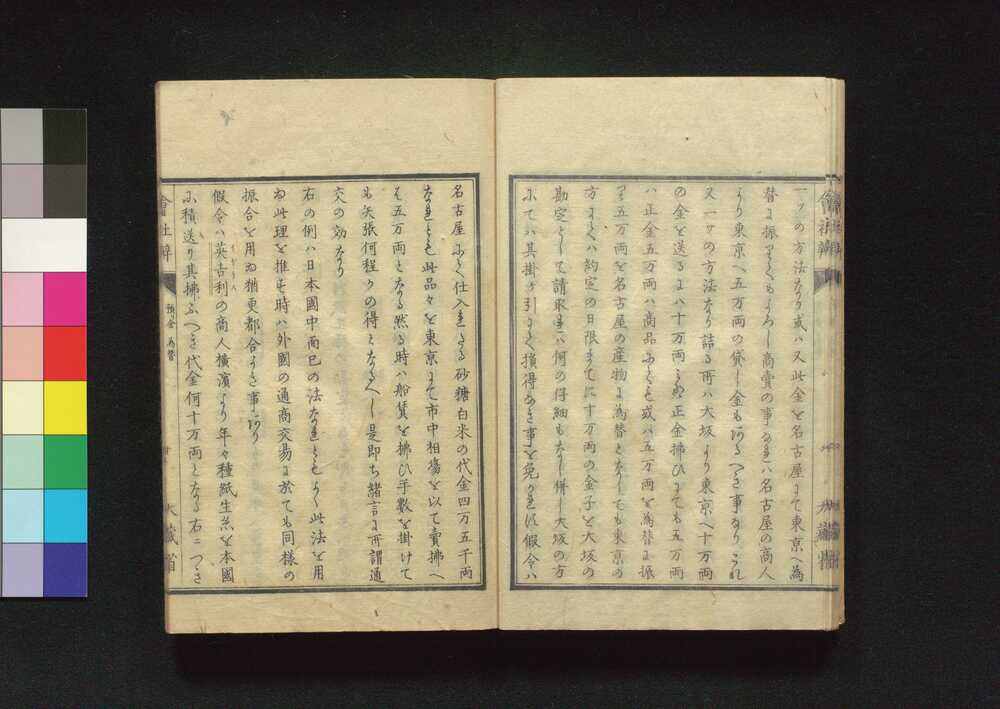 一ツの方法なり或ハ又此金を名古屋にて東京へ為
替に振りてもよろし商賣の事なれハ名古屋の商人
より東京へ五万両の貸し金もあるへき事なりこれ
又一ツの方法なり詰る所ハ大坂より東京へ十万両
の金を送るにハ十万両とも正金拂ひにても五万両
ハ正金五万両ハ商品にても或ハ五万両を為替に振
り五万両を名古屋の産物に為替となしても東京の
方にてハ約定の日限まてに十万両の金子を大坂の
勘定として請取れハ何の仔細もなし併し大坂の方
にてハ其掛け引にて損得あき事を免かれす假令ハ
名古屋にて仕入れたる砂糖白米の代金四万五千両
なれとも此品々を東京にて市中相場を以て賣拂へ
は五万両となる然る時ハ船賃を拂ひ手數を掛けて
も矢張何程クの得となるへし是即ち緒言に所謂通
交の効なり
右の例ハ日本國中而已の法なれともかく此法を用
ゐ此理を推す時ハ外國の通商交易に於ても同様の
振合を用ゐ猶更都合よき事あり
假令ハ英吉利の商人横濱より年々種紙生糸を本國
に積送り其拂ふへき代金何十万両となる右につき
會社辨
預り金 為替
大藏省
會社辨